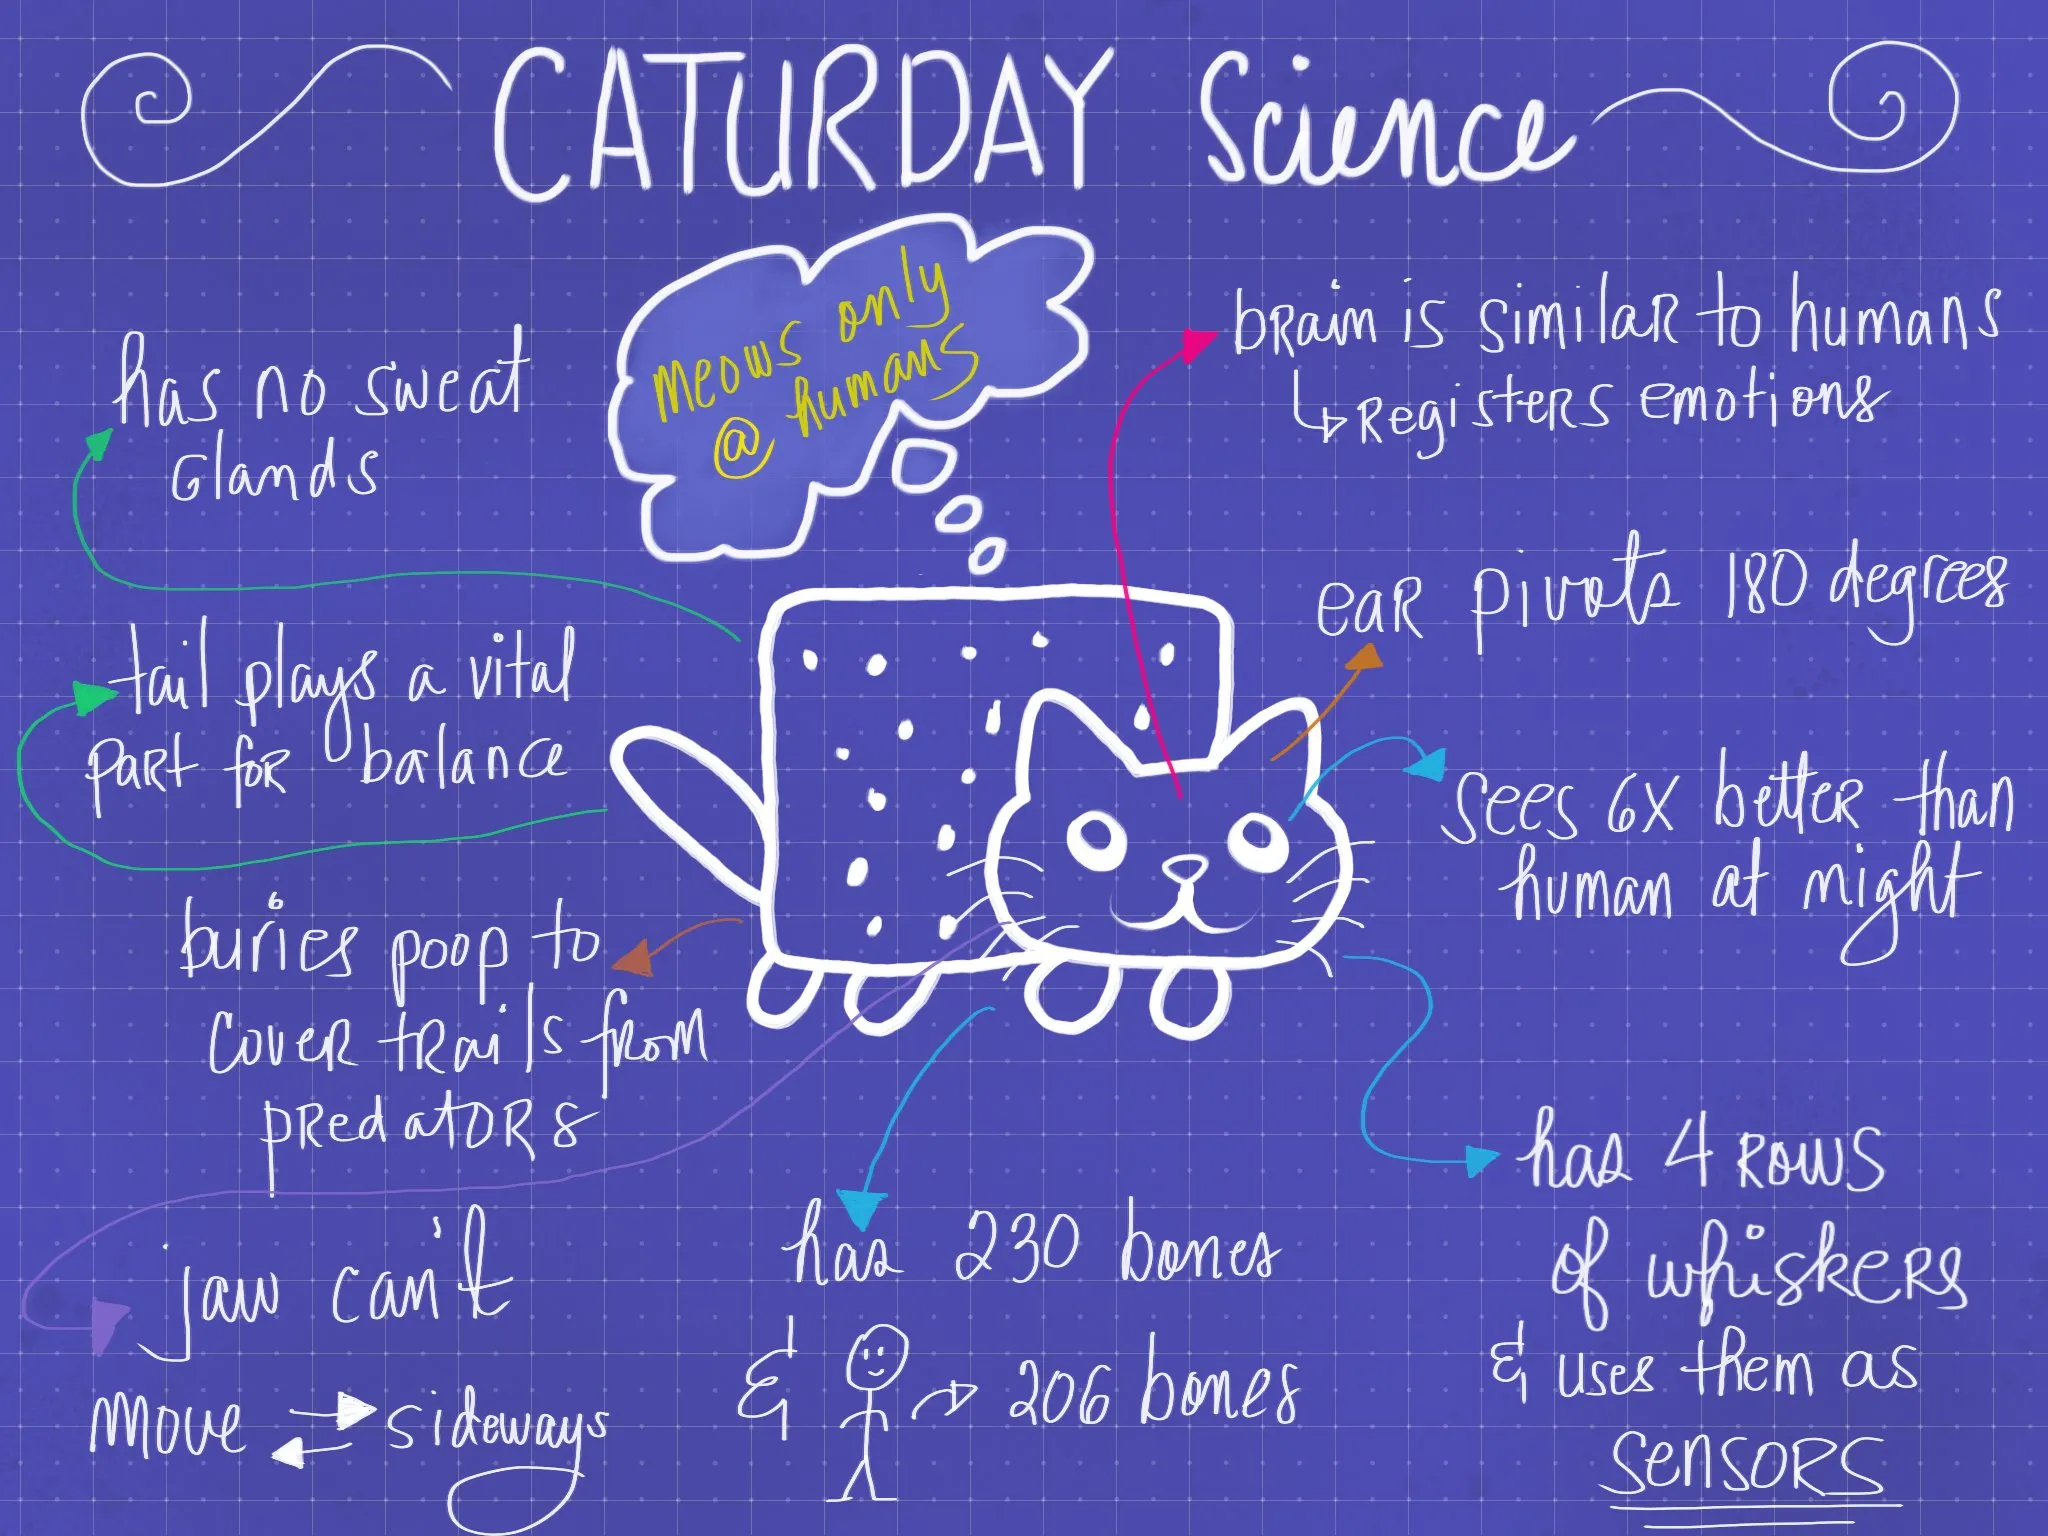 CATURDAY Science
meows only
@ humans
has no sweat
Glands
tail plays a vital
part for balance
buries poop to
cover trails from
predators
jaw can't
move sideways
has 230 bones
& 206 bones
brain is similar to humans
Registers emotions
ear pivots 180 degrees
sees 6x better than
human at night
has 4 rows
of whiskers
& uses them as
sensors